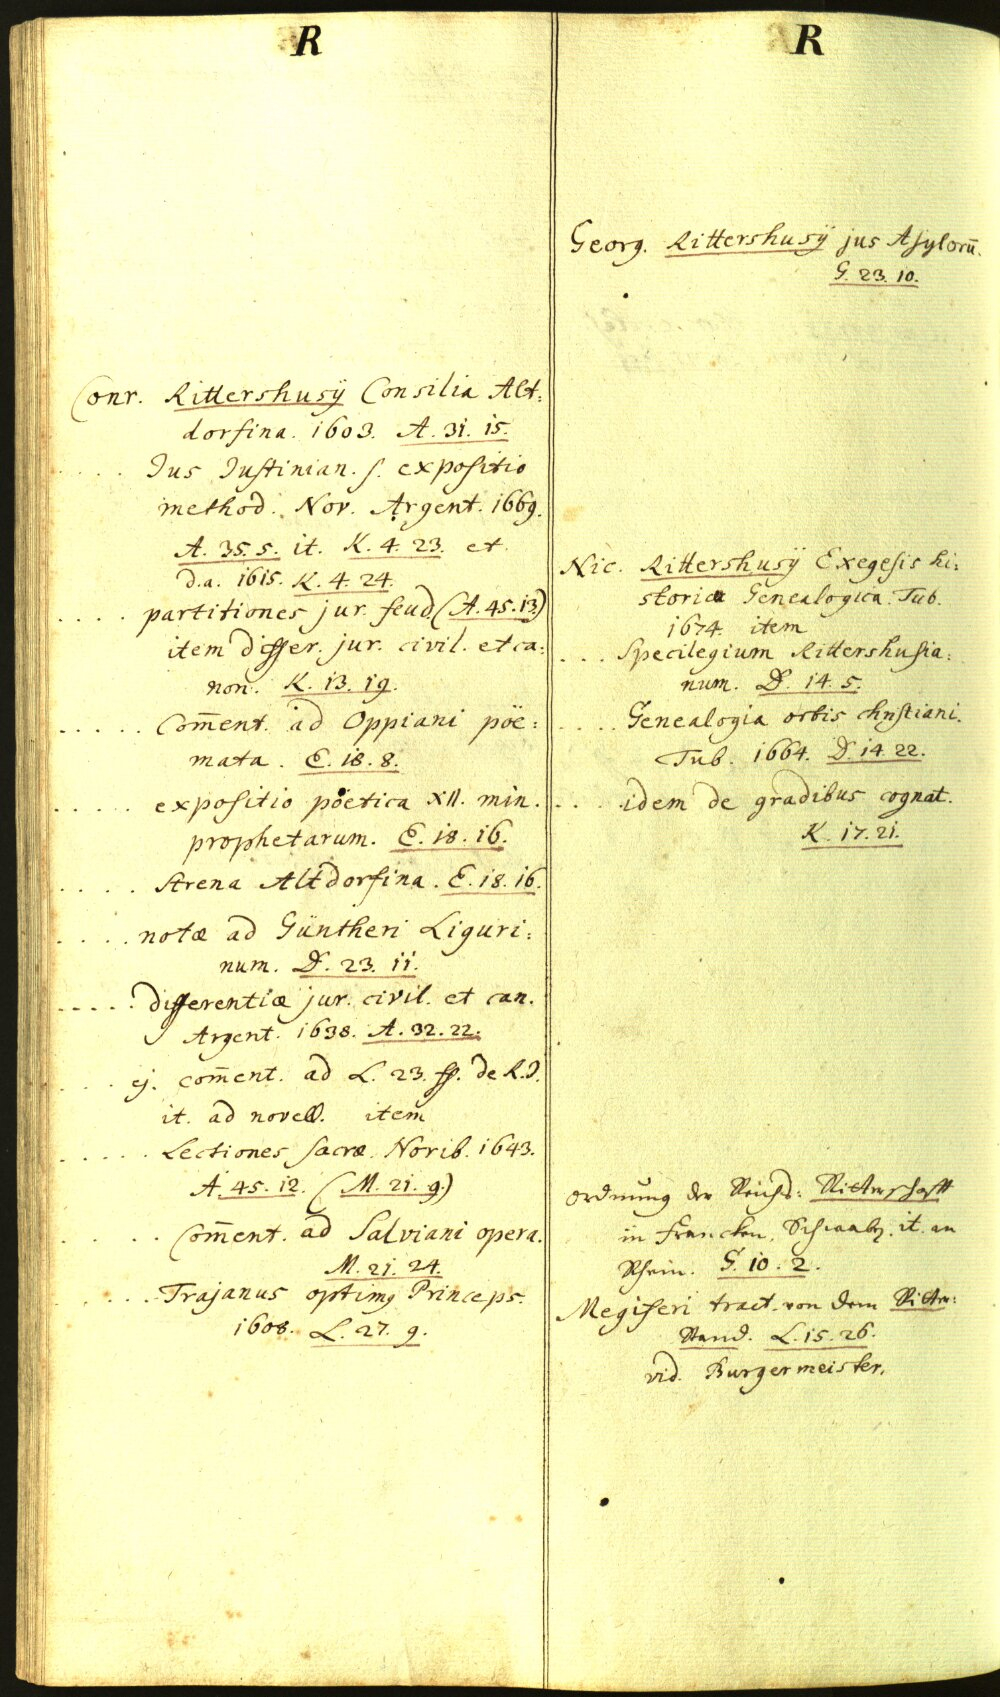 R
Conr. Rittershusÿ Consilia Alt:
dorfina. 1603. A. 31. 15.
. . . . Jus Justinian. s. expositio
method. Nov. Argent. 1669.
A. 35. 5. it. K. 4. 23. et
d.a. 1615. K. 4. 24.
. . . . partitiones jur. feud. (A. 45. 13.)
item differ. jur. civil. et ca:
non. K. 13. 19.
. . . . . Com̄ent. ad Oppiani pöe:
mata. E. 18. 8.
. . . . . expositio pöetica XII. min.
prophetarum. E. 18. 16.
. . . . Strena Altdorfina. E. 18. 16.
. . . . notæ ad Güntheri Liguri:
num. D. 23. 11.
. . . . . differentiæ jur. civil. et can.
Argent. 1638. A. 32. 22.
. . . ej. com̄ent. ad L. 23. ff. de R. J.
it. ad novell. item
. . . . . Lectiones sacræ. Norib. 1643.
A. 45. 12. (M. 21. 9.)
. . . . . Com̄ent. ad Salviani opera.
M. 21. 24.
. . . . Trajanus optimg Princeps.
1608. L. 27. 9.
R
Georg. Rittershusÿ jus Asylorū.
G. 23. 10.
Nic. Rittershusÿ Exegesis hi:
storica Genealogica. Tub.
1674. item
. . . Specilegium Rittershusia:
num. D. 14. 5.
. . . . Genealogia orbis christiani.
Tub. 1664. D. 14. 22.
. . . . idem de gradibus cognat.
K. 17. 21.
Ordnung der Reichs: Ritterschafft
in Francken, Schwaben, it. am
Rhein. G. 10. 2.
Megiseri tract. von dem Ritter:
Stand. L. 15. 26.
vid. Burgermeister.